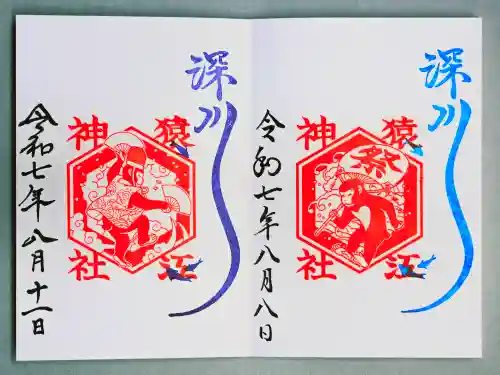 深川
猿江
神社
祭
令和七年八月八日
深川
猿江
神社
令和七年八月十一日